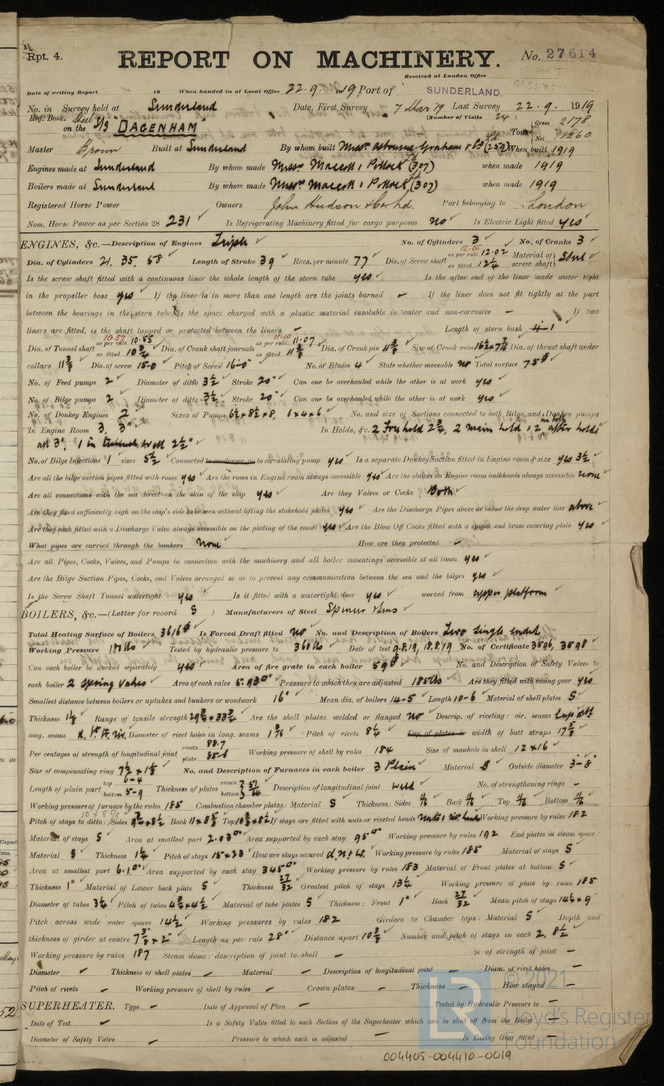 Rpt. 4.
REPORT ON MACHINERY.
No. 27614
Received at London Office
Date of writing Report 19 When handed in at Local Office 22.9. 1919 Port of SUNDERLAND
No. in Survey held at Sunderland Date, First Survey 7 Mar 19 Last Survey 22.9. 1919
Reg. Book. (Number of Visits 24)
on the S/S "DAGENHAM" Tons Gross 2178 Net 1260
Master Brown Built at Sunderland By whom built Messrs Osbourne Graham & Co When built 1919
Engines made at Sunderland By whom made Messrs Maccoll & Pollock (307) when made 1919
Boilers made at Sunderland By whom made Messrs Maccoll & Pollock (307) when made 1919
Registered Horse Power Owners John Hudson Co Ltd. Port belonging to London
Nom. Horse Power as per Section 28 231 Is Refrigerating Machinery fitted for cargo purposes no Is Electric Light fitted yes
ENGINES, &c.—Description of Engines Triple No. of Cylinders 3 No. of Cranks 3
Dia. of Cylinders 21. 35. 58 Length of Stroke 39 Revs. per minute 77 Dia. of Screw shaft as per rule 12.02 as fitted 12¼ Material of screw shaft Steel
Is the screw shaft fitted with a continuous liner the whole length of the stern tube yes Is the after end of the liner made water tight
in the propeller boss yes If the liner is in more than one length are the joints burned — If the liner does not fit tightly at the part
between the bearings in the stern tube, is the space charged with a plastic material insoluble in water and non-corrosive — If two
liners are fitted, is the shaft lapped or protected between the liners — Length of stern bush 4-1
Dia. of Tunnel shaft as per rule 10.55 as fitted 10¾ Dia. of Crank shaft journals as per rule 11.07 as fitted 11⅜ Dia. of Crank pin 11⅜ Size of Crank webs Dia. of thrust shaft under
collars 11⅜ Dia. of screw 15-0 Pitch of Screw 16-0 No. of Blades 4 State whether moveable no Total surface 75
No. of Feed pumps 2 Diameter of ditto 3½ Stroke 20 Can one be overhauled while the other is at work yes
No. of Bilge pumps 2 Diameter of ditto 3½ Stroke 20 Can one be overhauled while the other is at work yes
No. of Donkey Engines 2 Sizes of Pumps 6x4x6 No. and size of Suctions connected to both Bilge and Donkey pumps
In Engine Room 3, 3" In Holds, &c. 2 Forehold 2¾, 2 main hold & 2 in after hold
all 3". 1 in tunnel well 2½"
No. of Bilge Injections 1 sizes 5½ Connected to circulating pump yes Is a separate Donkey Suction fitted in Engine room & size yes 3½
Are all the bilge suction pipes fitted with roses yes Are the roses in Engine room always accessible yes Are the sluices on Engine room bulkheads always accessible none
Are all connections with the sea direct on the skin of the ship yes Are they Valves or Cocks Both
Are they fixed sufficiently high on the ship's side to be seen without lifting the stokehold plates yes Are the Discharge Pipes above or below the deep water line above
Are they each fitted with a Discharge Valve always accessible on the plating of the vessel yes Are the Blow Off Cocks fitted with a spigot and brass covering plate yes
What pipes are carried through the bunkers none How are they protected —
Are all Pipes, Cocks, Valves, and Pumps in connection with the machinery and all boiler mountings accessible at all times yes
Are the Bilge Suction Pipes, Cocks, and Valves arranged so as to prevent any communication between the sea and the bilges yes
Is the Screw Shaft Tunnel watertight yes Is it fitted with a watertight door yes worked from upper platform
BOILERS, &c.—(Letter for record S) Manufacturers of Steel Spencer & Sons
Total Heating Surface of Boilers 3616 Is Forced Draft fitted no No. and Description of Boilers Two single ended
Working Pressure 180 lbs Tested by hydraulic pressure to 360 lbs Date of test 2.8.19, 18.8.19 No. of Certificate 3596, 3598
Can each boiler be worked separately yes Area of fire grate in each boiler 59 No. and Description of Safety Valves to
each boiler 2 spring valves Area of each valve 5.93 Pressure to which they are adjusted 185 lbs Are they fitted with easing gear yes
Smallest distance between boilers or uptakes and bunkers or woodwork 16" Mean dia. of boilers 14-5 Length 10-6 Material of shell plates S
Thickness Range of tensile strength Are the shell plates welded or flanged no Descrip. of riveting: cir. seams
long. seams Diameter of rivet holes in long. seams Pitch of rivets 8½ width of butt straps
Per centages of strength of longitudinal joint rivets 88.7 plate 85.6 Working pressure of shell by rules 184 Size of manhole in shell 12x16
Size of compensating ring No. and Description of Furnaces in each boiler 3 Plain Material S Outside diameter 3-8
Length of plain part top 6-6 bottom 5-9 Thickness of plates crown bottom Description of longitudinal joint weld No. of strengthening rings —
Working pressure of furnace by the rules 185 Combustion chamber plates: Material S Thickness: Sides Back Top Bottom
Pitch of stays to ditto: Sides Back Top If stays are fitted with nuts or riveted heads nuts Working pressure by rules 182
Material of stays S Area at smallest part 2.03 Area supported by each stay 95 Working pressure by rules 192 End plates in steam space:
Material S Thickness 1¼ Pitch of stays 15x23 How are stays secured Working pressure by rules 185 Material of stays S
Area at smallest part 6.10 Area supported by each stay 345 Working pressure by rules 183 Material of Front plates at bottom S
Thickness 1" Material of Lower back plate S Thickness 27/32 Greatest pitch of stays 13½ Working pressure of plate by rules 185
Diameter of tubes 3¼ Pitch of tubes Material of tube plates S Thickness: Front 1" Back 27/32 Mean pitch of stays
Pitch across wide water spaces 14½ Working pressures by rules 182 Girders to Chamber tops: Material S Depth and
thickness of girder at centre Length as per rule 28" Distance apart 10⅜ Number and pitch of stays in each 2, 8½
Working pressure by rules 187 Steam dome: description of joint to shell — % of strength of joint —
Diameter — Thickness of shell plates — Material — Description of longitudinal joint — Diam. of rivet holes —
Pitch of rivets — Working pressure of shell by rules — Crown plates — Thickness — How stayed —
SUPERHEATER. Type — Date of Approval of Plan — Tested by Hydraulic Pressure to —
Date of Test — Is a Safety Valve fitted to each Section of the Superheater which can be shut off from the Boiler —
Diameter of Safety Valve — Pressure to which each is adjusted — Is Easing Gear fitted —
© 2021
LR
Lloyd's Register
Foundation
004405-004410-0019